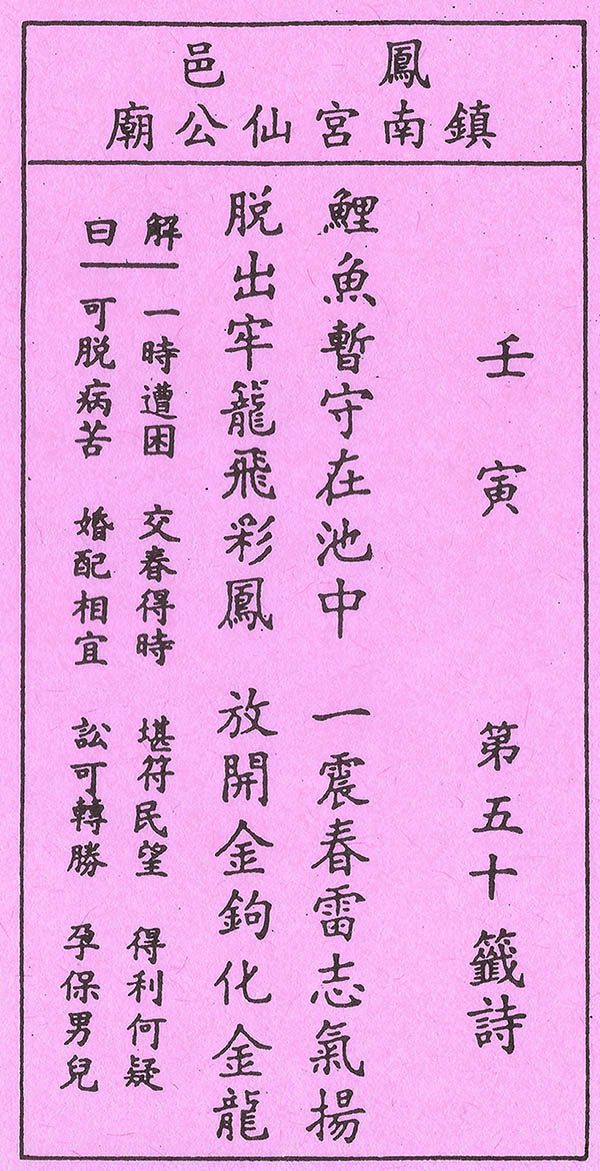 鳳邑
鎮南宮仙公廟
壬寅 第五十籤詩
鯉魚暫守在池中 一震春雷志氣揚
脱出牢籠飛彩鳳 放開金鉤化金龍
解曰
一時遭困 交春得時 堪符民望 得利何疑
可脱病苦 婚配相宜 訟可轉勝 孕保男兒